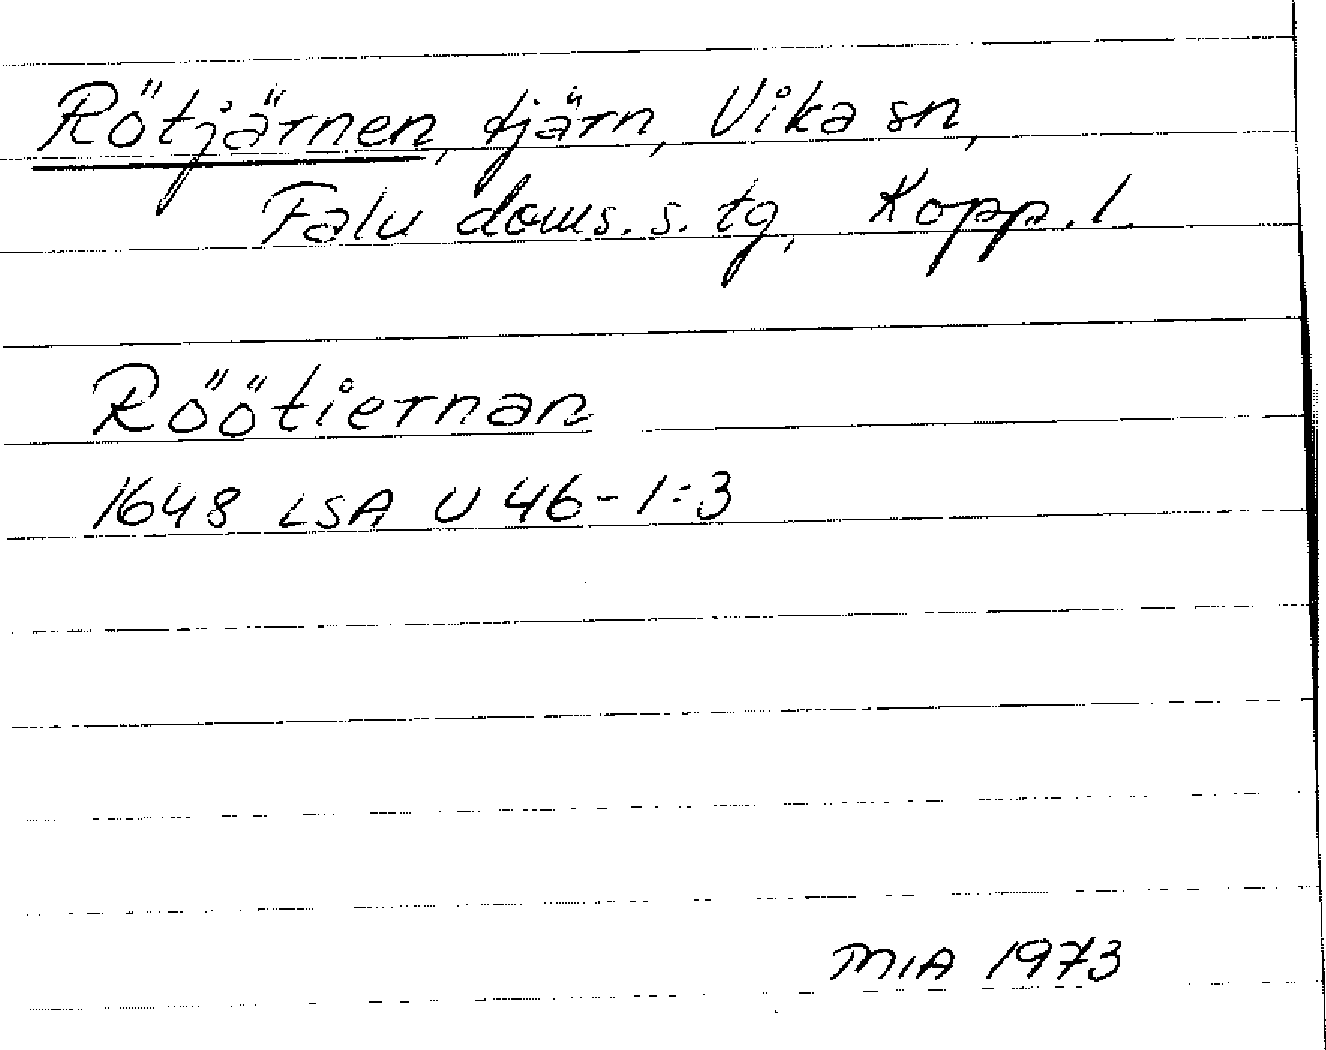 Rötjärnen, tjärn, Vika sn,
Falu doms. s. tg, Kopp. l.
Röötiernan
1648 LSA U 46-1:3
MIA 1973